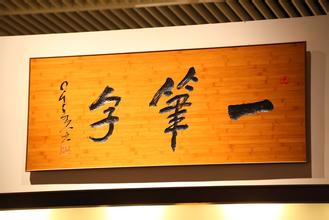 一筆字